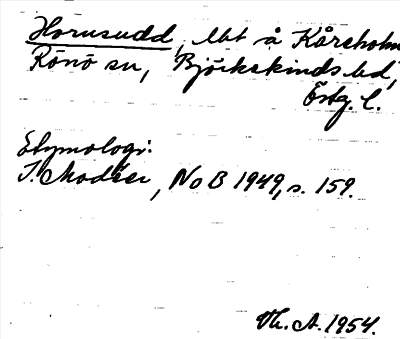 Hornsudd, llt å Kårsholm
Rönö sn, Björkekinds hd,
Östg. l.
Etymologi:
I. Modéer, NoB 1949, s. 159.
Vh. A. 1954.